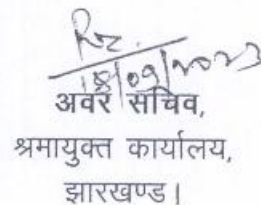 18/09/2023
अवर सचिव,
श्रमायुक्त कार्यालय,
झारखण्ड।